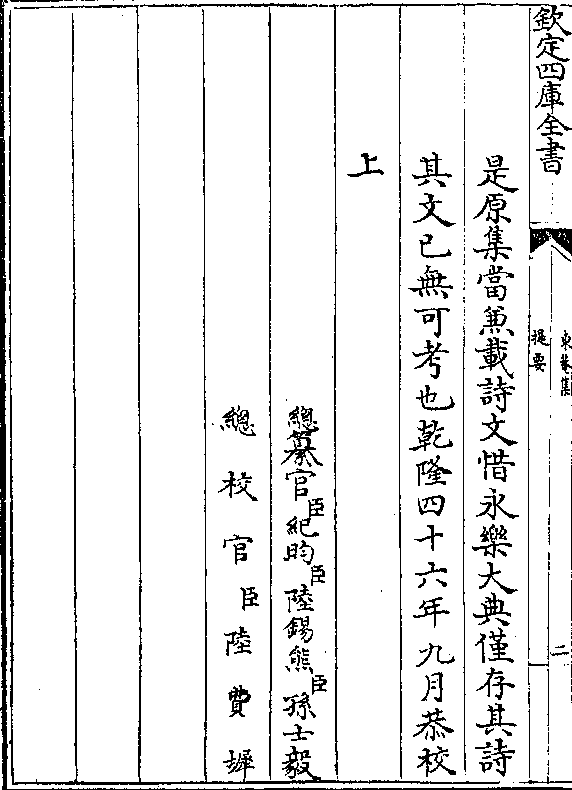 欽定四庫全書
東菴集
提要
二
是原集當兼載詩文惜永樂大典僅存其詩
其文已無可考也乾隆四十六年九月恭校
上
總纂官臣紀昀臣陸錫熊臣孫士毅
總校官臣陸費墀